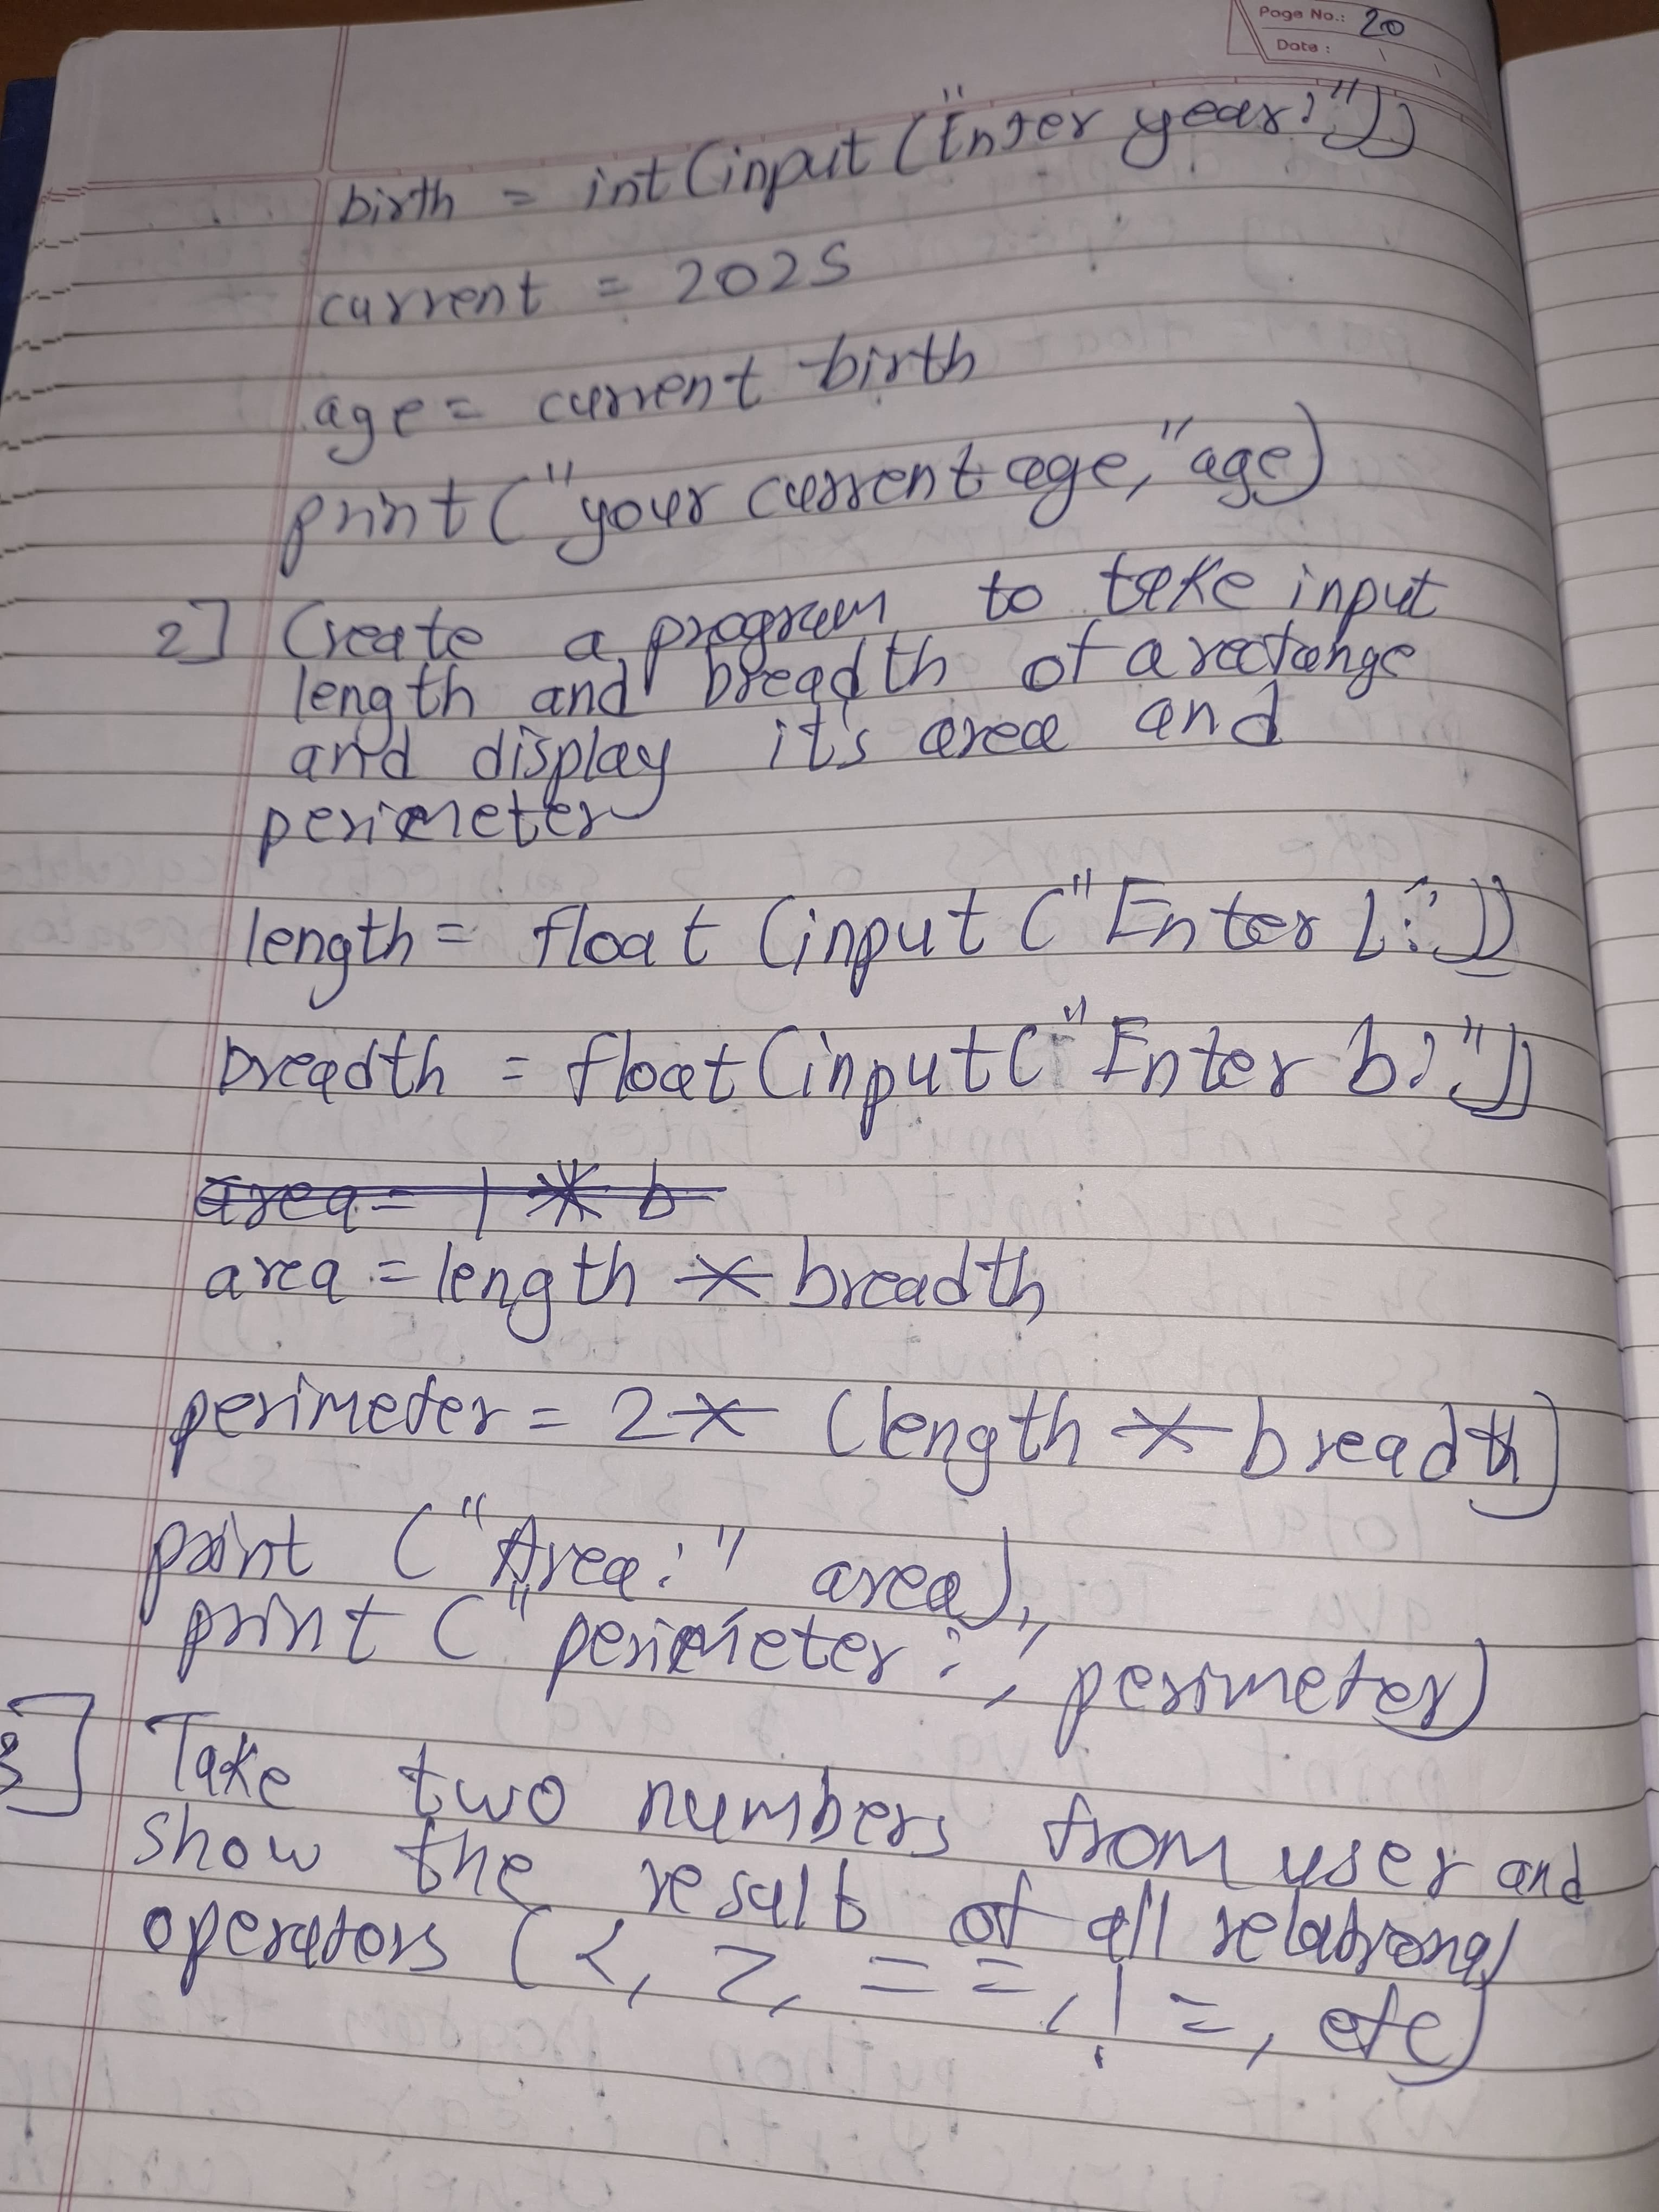 Page No.: 20
Date :
birth = int(input("Enter year:"))
current = 2025
age = current - birth
print("your current age," age)
2] Create a program to take input
length and breadth of a rectange
and display it's area and
perimeter
length = float (input ("Enter l:"))
breadth = float(input("Enter b:"))
area = l * b
area = length * breadth
perimeter = 2 * (length * breadth)
print ("Area:" area),
print ("perimeter:", perimeter)
3] Take two numbers from user and
show the result of all relational
operators (<, >, ==, !=, etc)